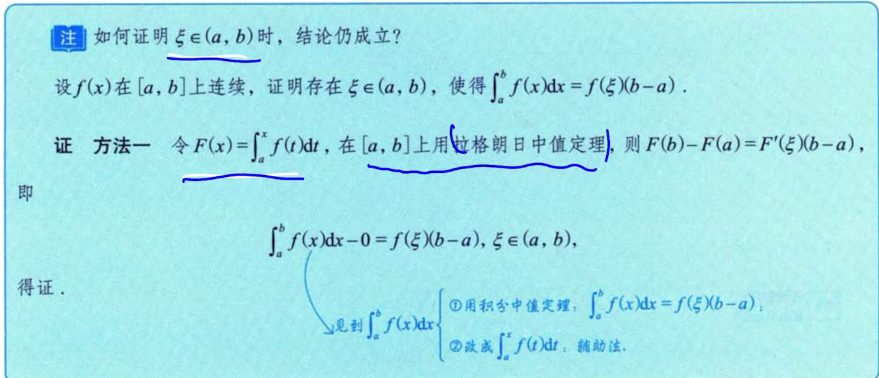 注 如何证明 ξ∈(a, b)时，结论仍成立？
设f(x)在[a, b]上连续，证明存在 ξ∈(a, b)，使得∫_a^b f(x)dx = f(ξ)(b-a).
证 方法一 令F(x)=∫_a^x f(t)dt，在[a, b]上用拉格朗日中值定理，则F(b)-F(a)=F′(ξ)(b-a)，
即
∫_a^b f(x)dx-0=f(ξ)(b-a), ξ∈(a, b),
得证.
见到∫_a^b f(x)dx
①用积分中值定理：∫_a^b f(x)dx=f(ξ)(b-a)；
②改成∫_a^x f(t)dt：辅助法.